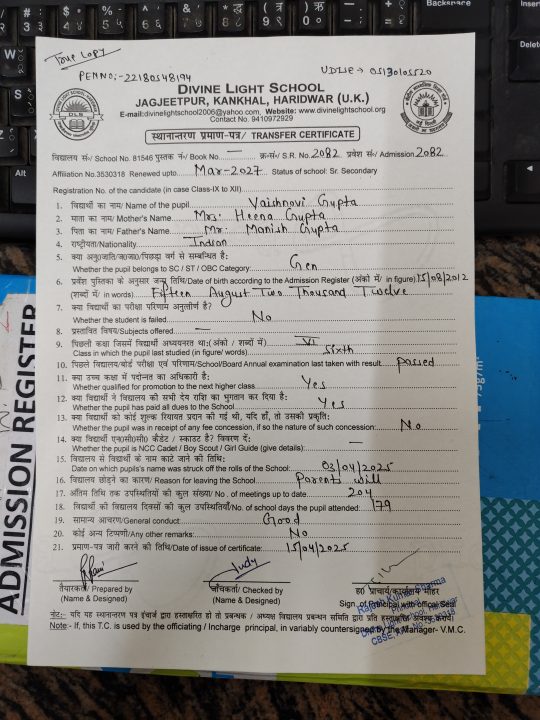 True Copy
PEN NO:- 22180548194
UDISE → 05130105520
DIVINE LIGHT SCHOOL
JAGJEETPUR, KANKHAL, HARIDWAR (U.K.)
E-mail:divinelightschool2006@yahoo.com, Website: www.divinelightschool.org
Contact No. 9410972929
स्थानान्तरण प्रमाण-पत्र/ TRANSFER CERTIFICATE
विद्यालय सं०/ School No. 81546 पुस्तक नं०/ Book No. — क्र०सं०/ S.R. No. 2082 प्रवेश सं०/ Admission 2082
Affiliation No.3530318 Renewed upto Mar-2027 Status of school: Sr. Secondary
Registration No. of the candidate (in case Class-IX to XII)
1. विद्यार्थी का नाम/ Name of the pupil Vaishnavi Gupta
2. माता का नाम/ Mother's Name Mrs. Heena Gupta
3. पिता का नाम/ Father's Name Mr. Manish Gupta
4. राष्ट्रीयता/Nationality Indian
5. क्या अनु०जाति/ज०जा०/पिछड़ा वर्ग से सम्बन्धित है:
Whether the pupil belongs to SC / ST / OBC Category: Gen
6. प्रवेश पुस्तिका के अनुसार जन्म तिथि/Date of birth according to the Admission Register (अंको में/ in figure) 15/08/2012
(शब्दों में/ in words) Fifteen August Two Thousand Twelve
7. क्या विद्यार्थी का परीक्षा परिणाम अनुत्तीर्ण है?
Whether the student is failed No
8. प्रस्तावित विषय/Subjects offered —
9. पिछली कक्षा जिसमें विद्यार्थी अध्ययनरत था:(अंको / शब्दों में) VI
Class in which the pupil last studied (in figure/ words) Sixth
10. पिछले विद्यालय/बोर्ड परीक्षा एवं परिणाम/School/Board Annual examination last taken with result Passed
11. क्या उच्च कक्षा में पदोन्नत का अधिकारी है:
Whether qualified for promotion to the next higher class Yes
12. क्या विद्यार्थी ने विद्यालय की सभी देय राशि का भुगतान कर दिया है:
Whether the pupil has paid all dues to the School Yes
13. क्या विद्यार्थी को कोई शुल्क रियायत प्रदान की गई थी, यदि हाँ, तो उसकी प्रकृति:
Whether the pupil was in receipt of any fee concession, if so the nature of such concession: No
14. क्या विद्यार्थी एन०सी०सी० कैडेट / स्काउट है? विवरण दें:
Whether the pupil is NCC Cadet / Boy Scout / Girl Guide (give details): —
15. विद्यालय से विद्यार्थी के नाम काटे जाने की तिथि:
Date on which pupils's name was struck off the rolls of the School: 03/04/2025
16. विद्यालय छोड़ने का कारण/ Reason for leaving the School Parents will
17. अंतिम तिथि तक उपस्थितियों की कुल संख्या/ No. of meetings up to date 204
18. विद्यार्थी की विद्यालय दिवस की कुल उपस्थितियाँ/No. of school days the pupil attended: 179
19. सामान्य आचरण/General conduct: Good
20. कोई अन्य टिप्पणी/Any other remarks: No
21. प्रमाण-पत्र जारी करने की तिथि/Date of issue of certificate: 15/04/2025
तैयारकर्ता/ Prepared by
(Name & Designed)
जाँचकर्ता/ Checked by
(Name & Designed)
ह० प्राचार्य/कार्यालय मोहर
Sign. of Principal with office Seal
नोट:- यदि यह स्थानान्तरण पत्र इंचार्ज द्वारा हस्ताक्षरित हो तो प्रबन्धक / अध्यक्ष विद्यालय प्रबन्धन समिति द्वारा प्रति हस्ताक्षरित अवश्य करायें।
Note:- If, this T.C. is used by the officiating / Incharge principal, in variably countersigned by the Manager- V.M.C.
ADMISSION REGISTER
Backspace
Delete
Alt